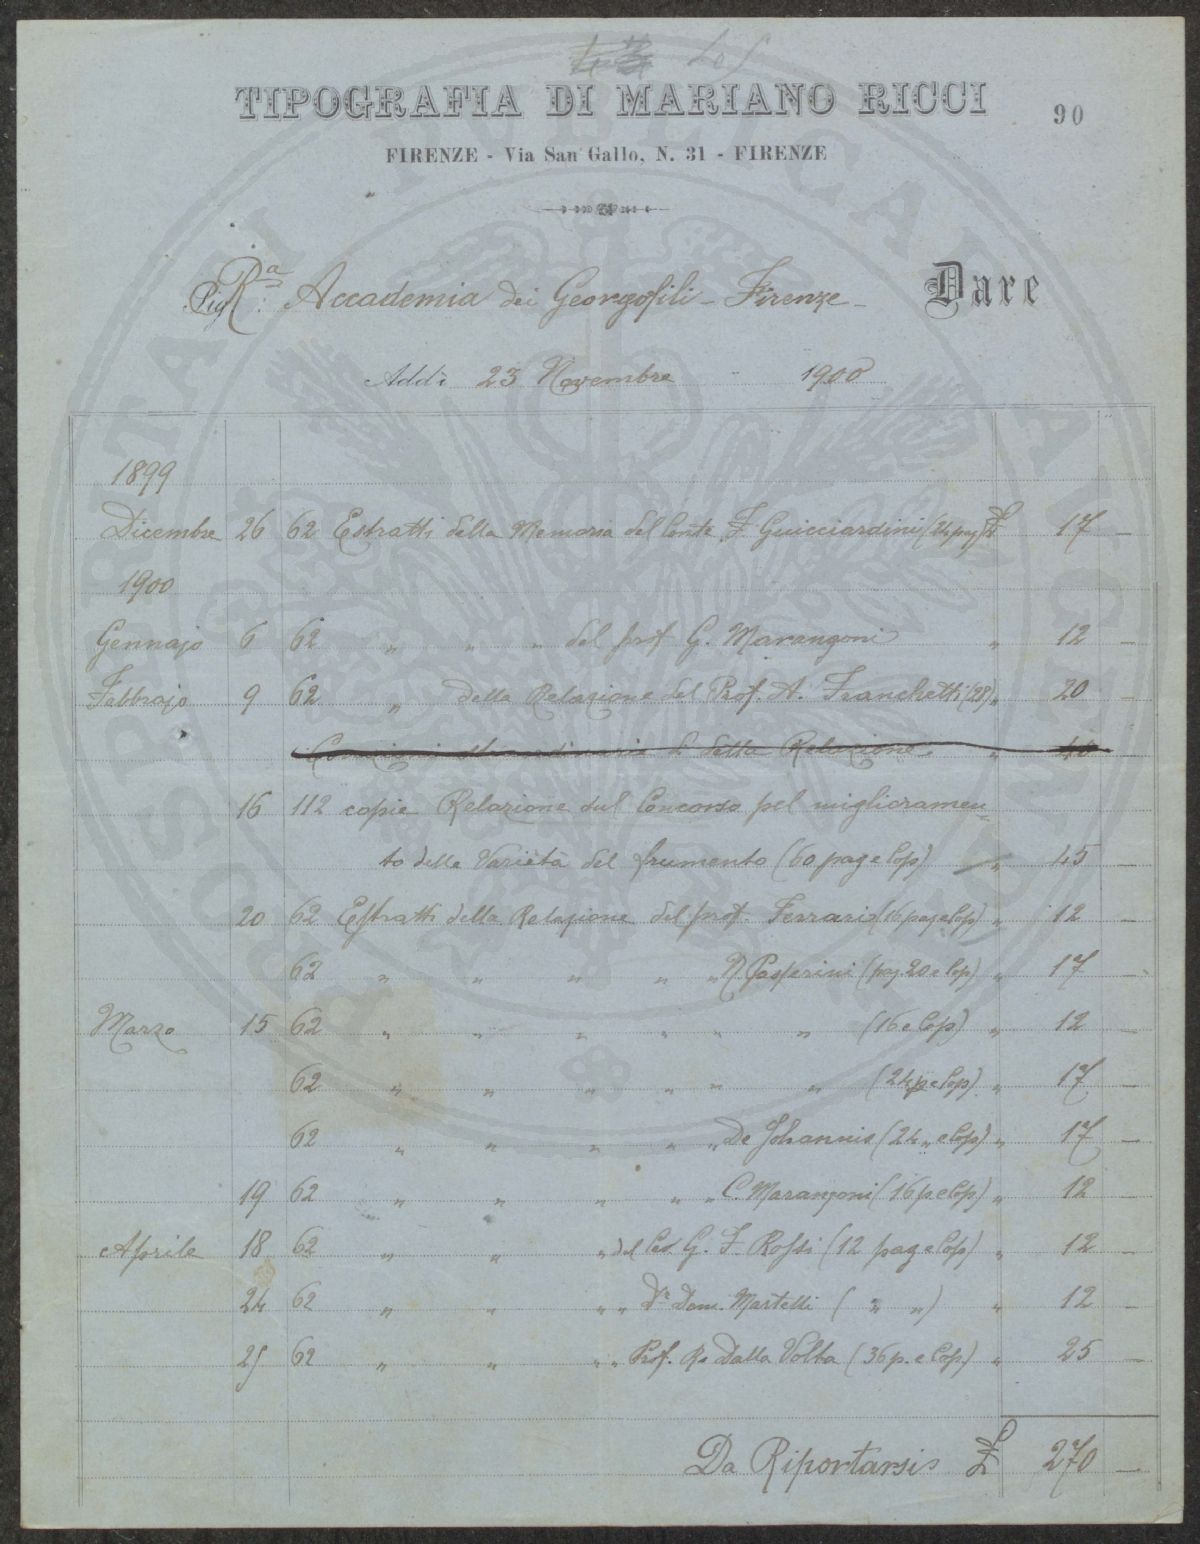 TIPOGRAFIA DI MARIANO RICCI
90
FIRENZE - Via San Gallo, N. 31 - FIRENZE
Sig. R.a Accademia dei Georgofili - Firenze - Dare
Addì 23 Novembre 1900
1899
Dicembre 26 62 Estratti della Memoria del Conte F. Guicciardini (24 pag) £ 17 —
1900
Gennajo 6 62 " " " del prof G. Marangoni " 12 —
Febbrajo 9 62 " della Relazione del Prof. A. Franchetti (28) " 20 —
Correzioni straordinarie di detta Relazione " 40
16 112 copie Relazione sul Concorso pel miglioramen
to delle Varietà del frumento (60 pag e Cop) " 45 —
20 62 Estratti della Relazione del prof. Ferrari (16 pag e Cop) " 12 —
62 " " " " " N. Passerini (pag. 20 e Cop) " 17 —
Marzo 15 62 " " " " " " " (16 e Cop) " 12 —
62 " " " " " " (24 p e Cop) " 17 —
62 " " " " " De Johannis (24 " e Cop) " 17 —
19 62 " " " " " C. Marangoni (16 p e Cop) " 12 —
Aprile 18 62 " " " del G. F. Rossi (12 pag e Cop) " 12 —
24 62 " " " " Dr Dom. Martelli ( " " ) " 12 —
25 62 " " " " Prof. R. Dalla Volta (36 p. e Cop) " 25 —
Da Riportarsi £ 270 —
PROSPERITATI PUBLICAE AUGENDAE